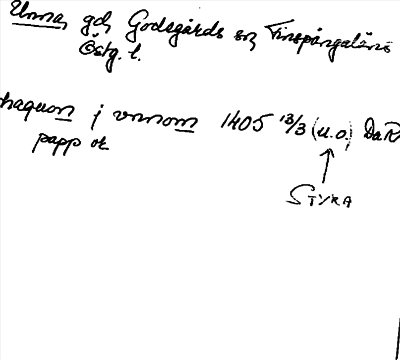 Unna, gd, Godegårds sn, Finspångaläns
Östg. l.
haquon j vnnom 1405 13/3 (u.o.) DaR
papp or
STYRA